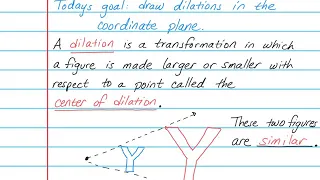 Todays goal: draw dilations in the
coordinate plane.
A dilation is a transformation in which
a figure is made larger or smaller with
respect to a point called the
center of dilation.
These two figures
are similar.